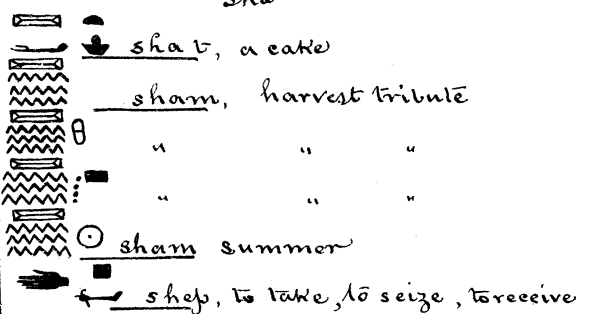 sha t, a cake
sham, harvest tribute
" " "
" " "
sham summer
shep, to take, to seize, to receive